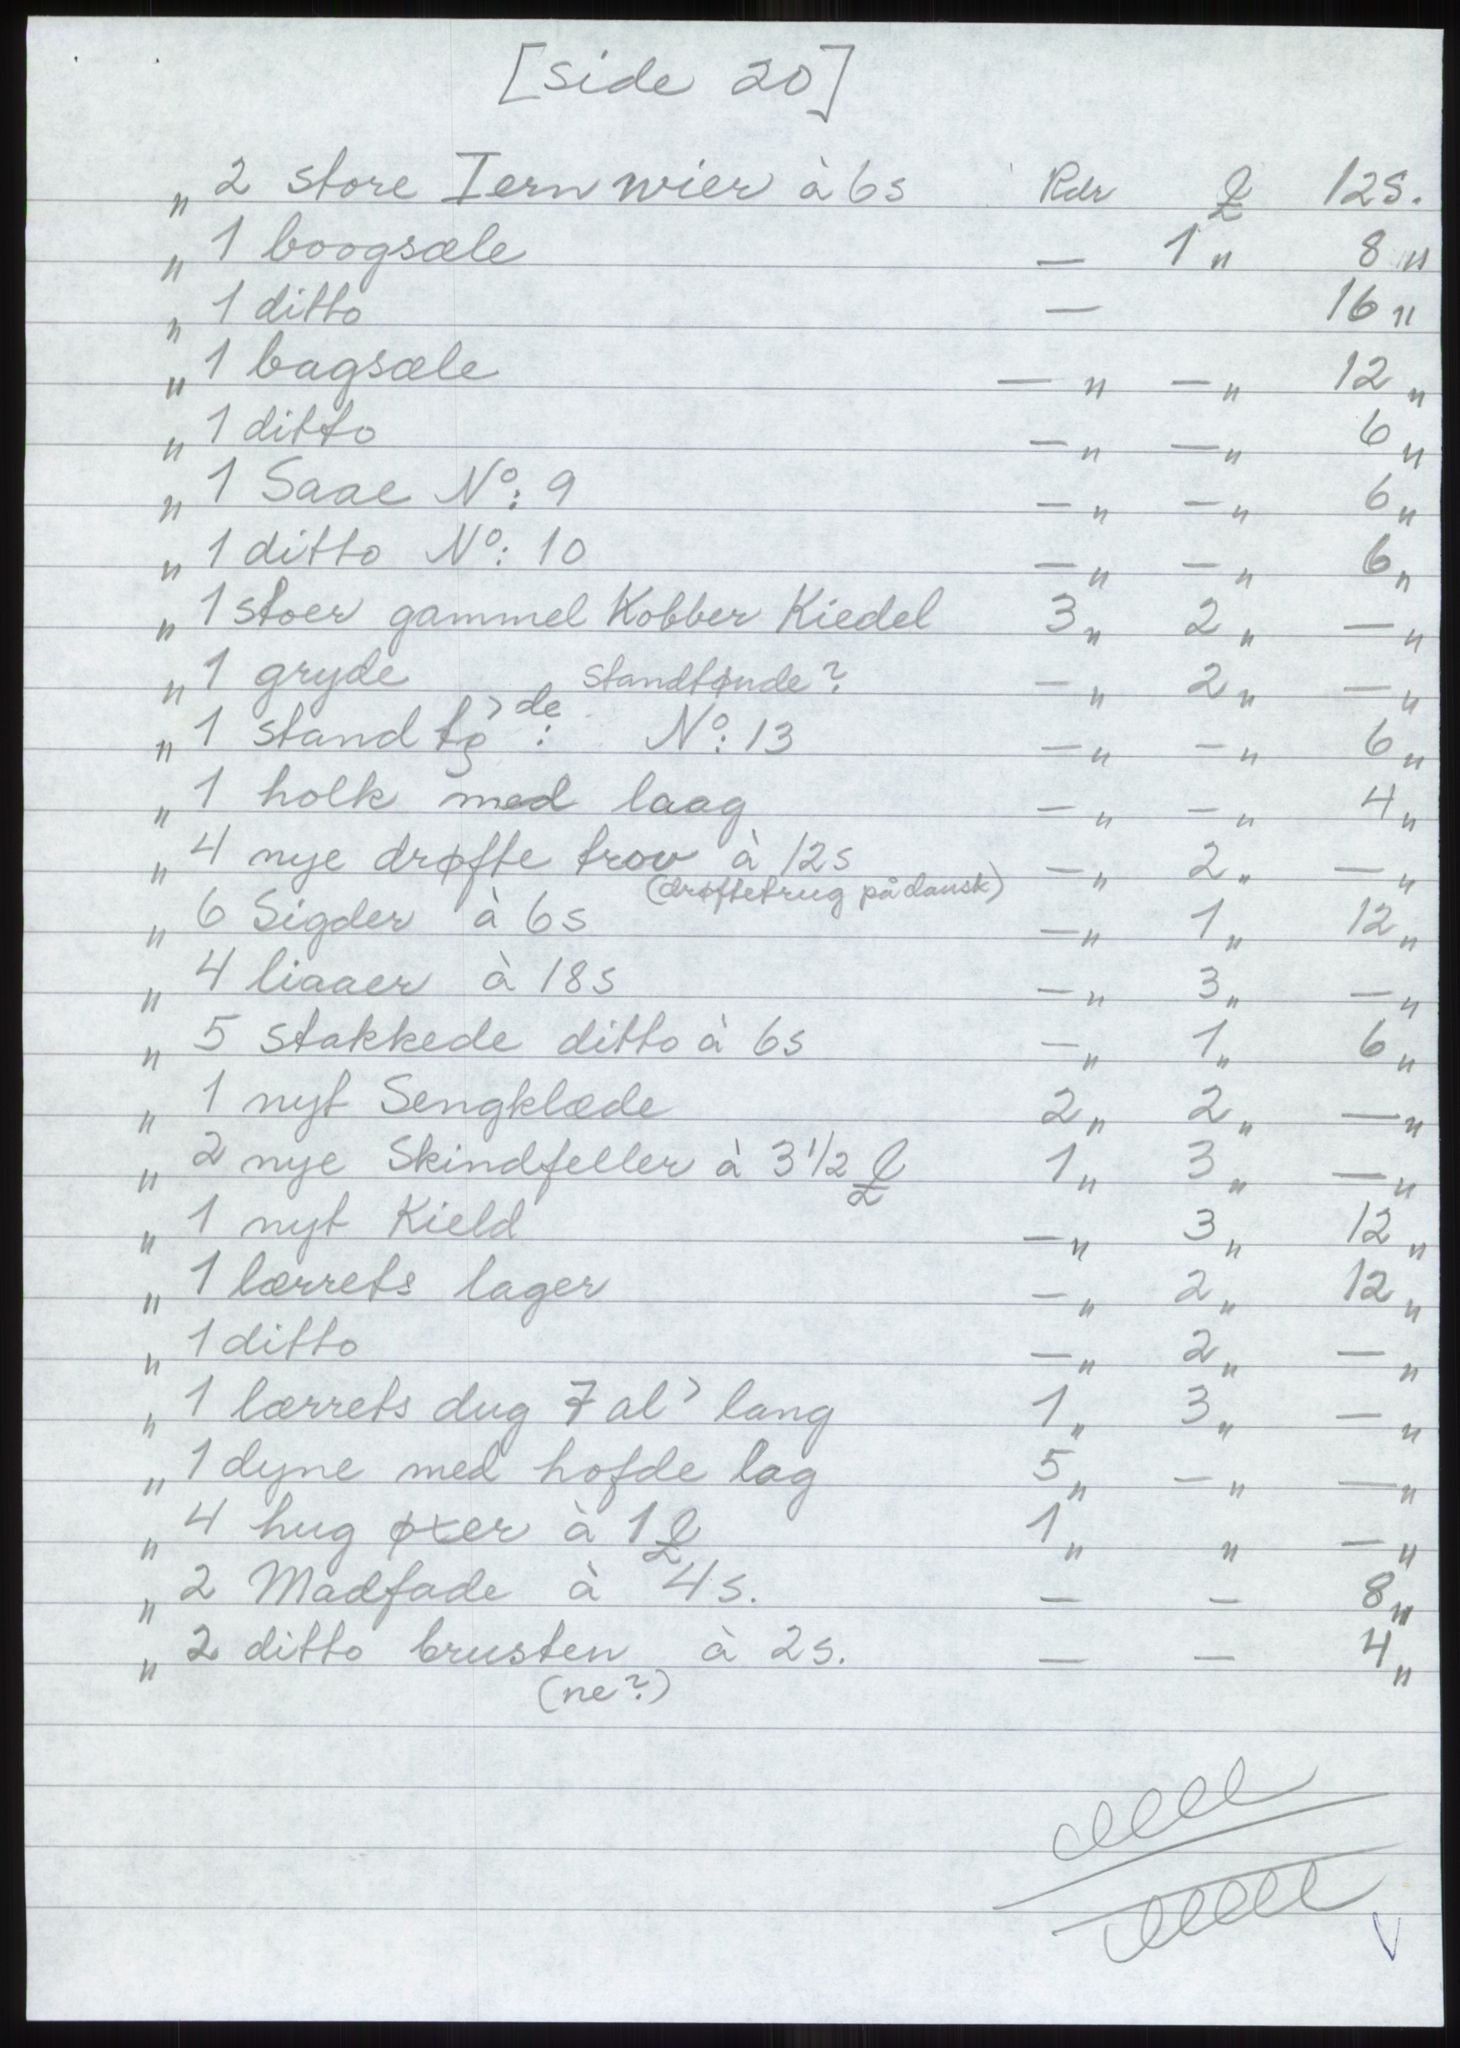 [side 20]
„ 2 store Iern wier à 6s Rdr ₤ 12s.
„ 1 boogsæle — 1„ 8„
„ 1 ditto — 16„
„ 1 bagsæle —„ —„ 12„
„ 1 ditto —„ —„ 6„
„ 1 Saae No: 9 —„ —„ 6„
„ 1 ditto No: 10 —„ —„ 6„
„ 1 stoer gammel Kobber Kiedel 3„ 2„ —„
„ 1 gryde standtønde? —„ 2„ —„
„ 1 stand tø de: No: 13 —„ —„ 6„
„ 1 holk med laag —„ —„ 4„
„ 4 nye drøfte trov à 12s —„ 2„ —„
(drøftetrug på dansk)
„ 6 Sigder à 6s —„ 1„ 12„
„ 4 liaaer à 18s —„ 3„ —„
„ 5 stakkede ditto à 6s —„ 1„ 6„
„ 1 nyt Sengklæde 2„ 2„ —„
„ 2 nye Skindfeller à 3 1/2 ₤ 1„ 3„ —„
„ 1 nyt Kield —„ 3„ 12„
„ 1 lærrets lager —„ 2„ 12„
„ 1 ditto —„ 2„ —„
„ 1 lærrets dug 7 al' lang 1„ 3„ —„
„ 1 dyne med hofde lag 5„ —„ —„
„ 4 hug øxer à 1 ₤ 1„ „ —„
„ 2 Madfade à 4s. — — 8„
„ 2 ditto brusten à 2s. — — 4„
(ne?)